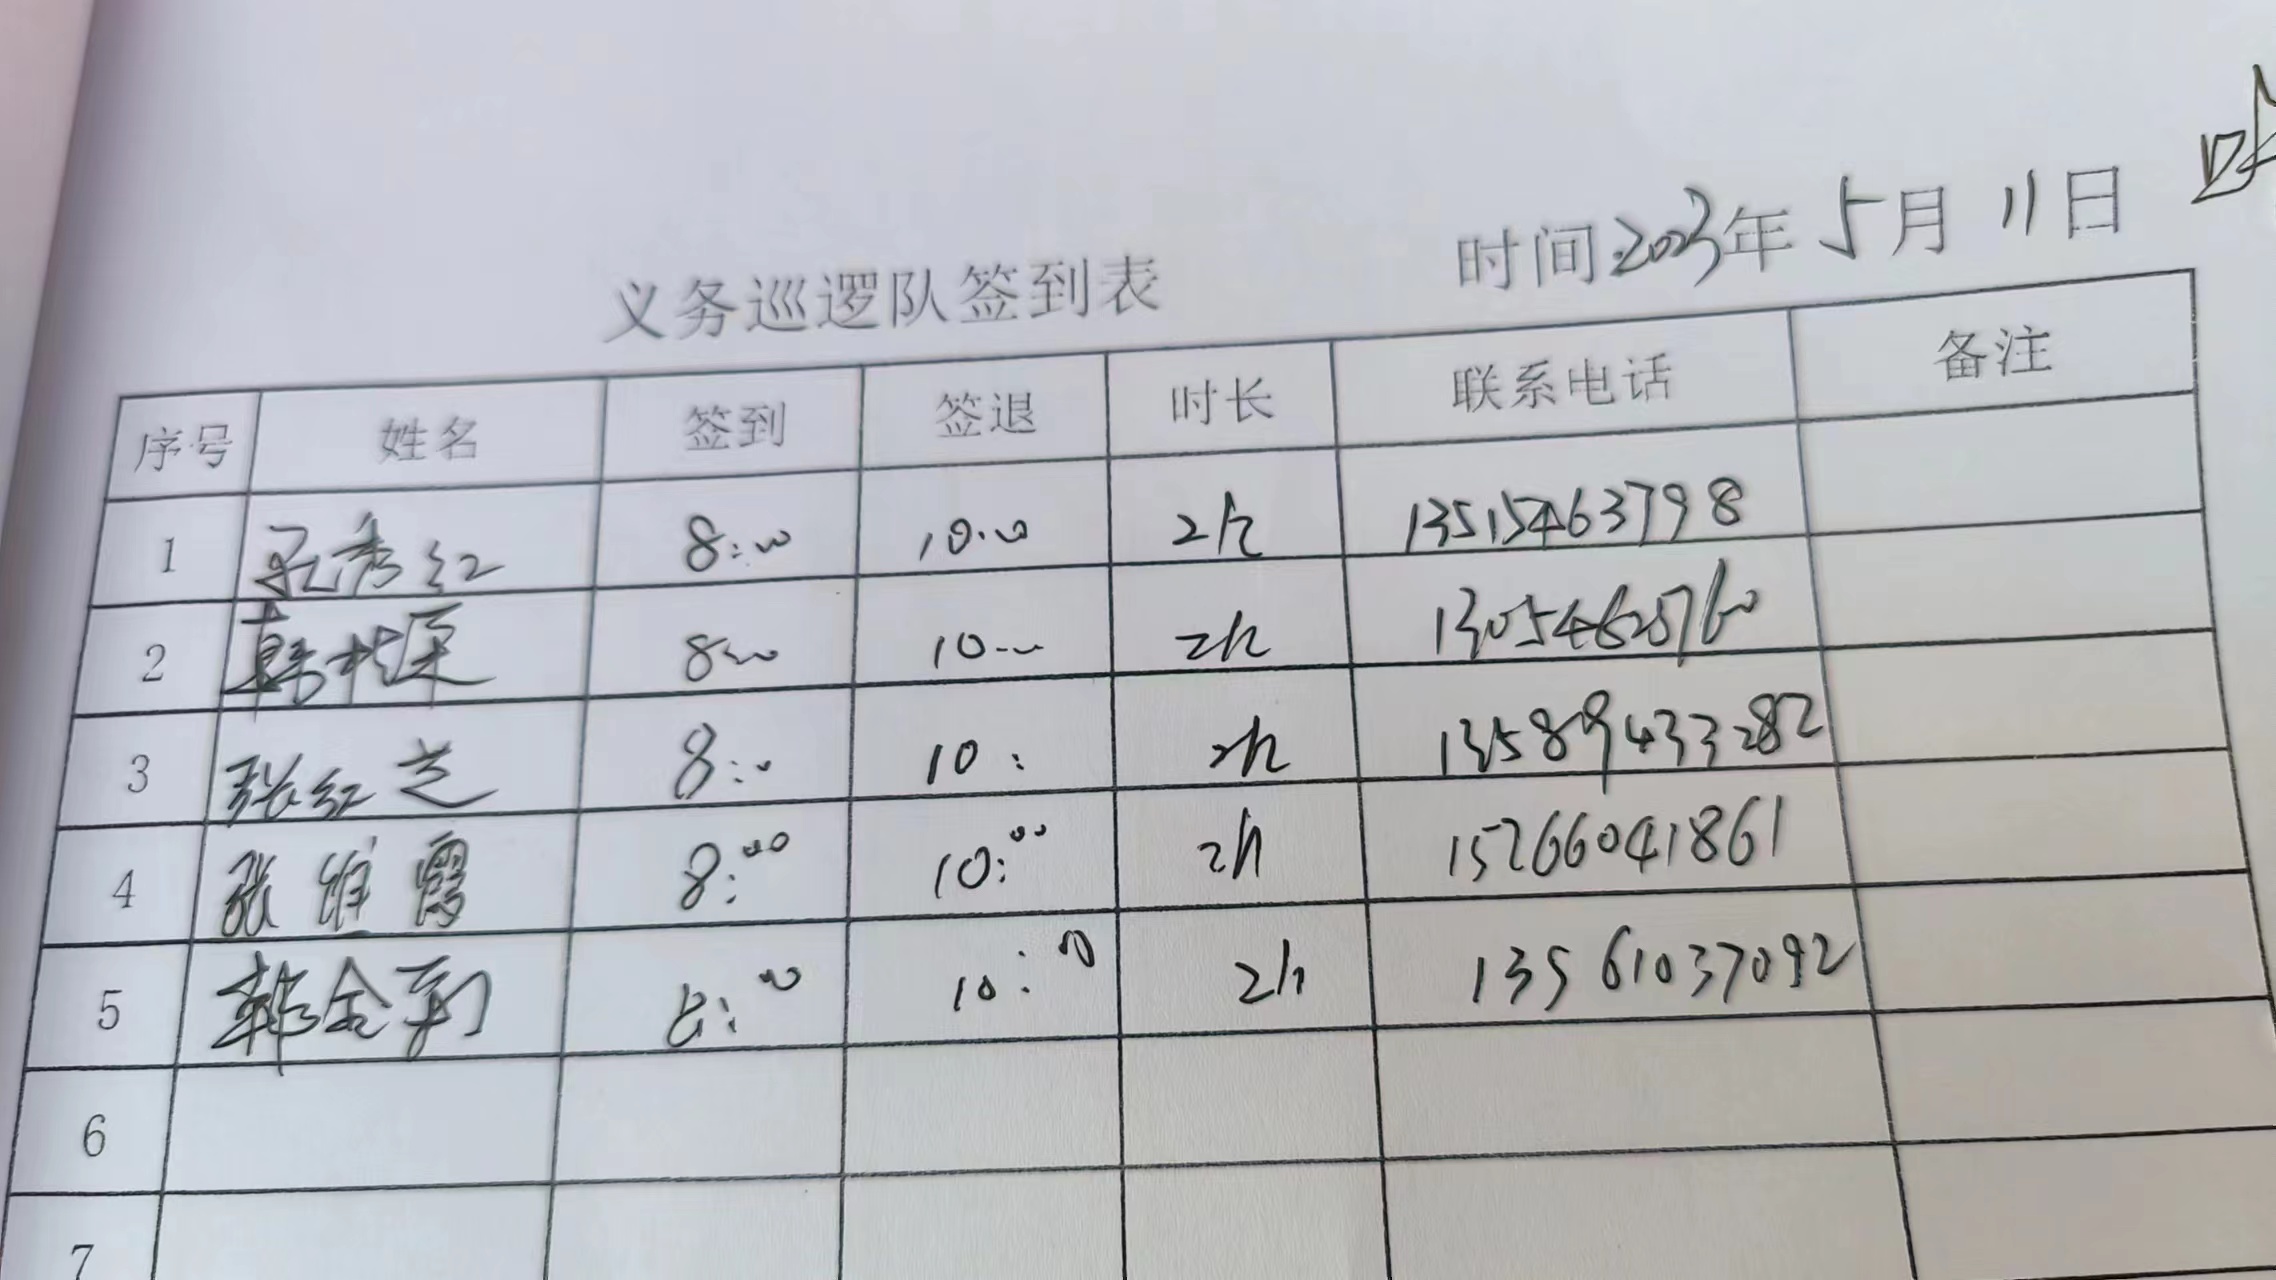 义务巡逻队签到表 时间:2023年5月11日
序号 姓名 签到 签退 时长 联系电话 备注
1 秀红 8:00 10:00 2h 13515463798
2 韩 8:00 10:00 2h 13054625760
3 张红芝 8:00 10: 2h 13589433282
4 张维霞 8:00 10:00 2h 15266041861
5 韩金利 8:00 10:00 2h 13561037092
6
7